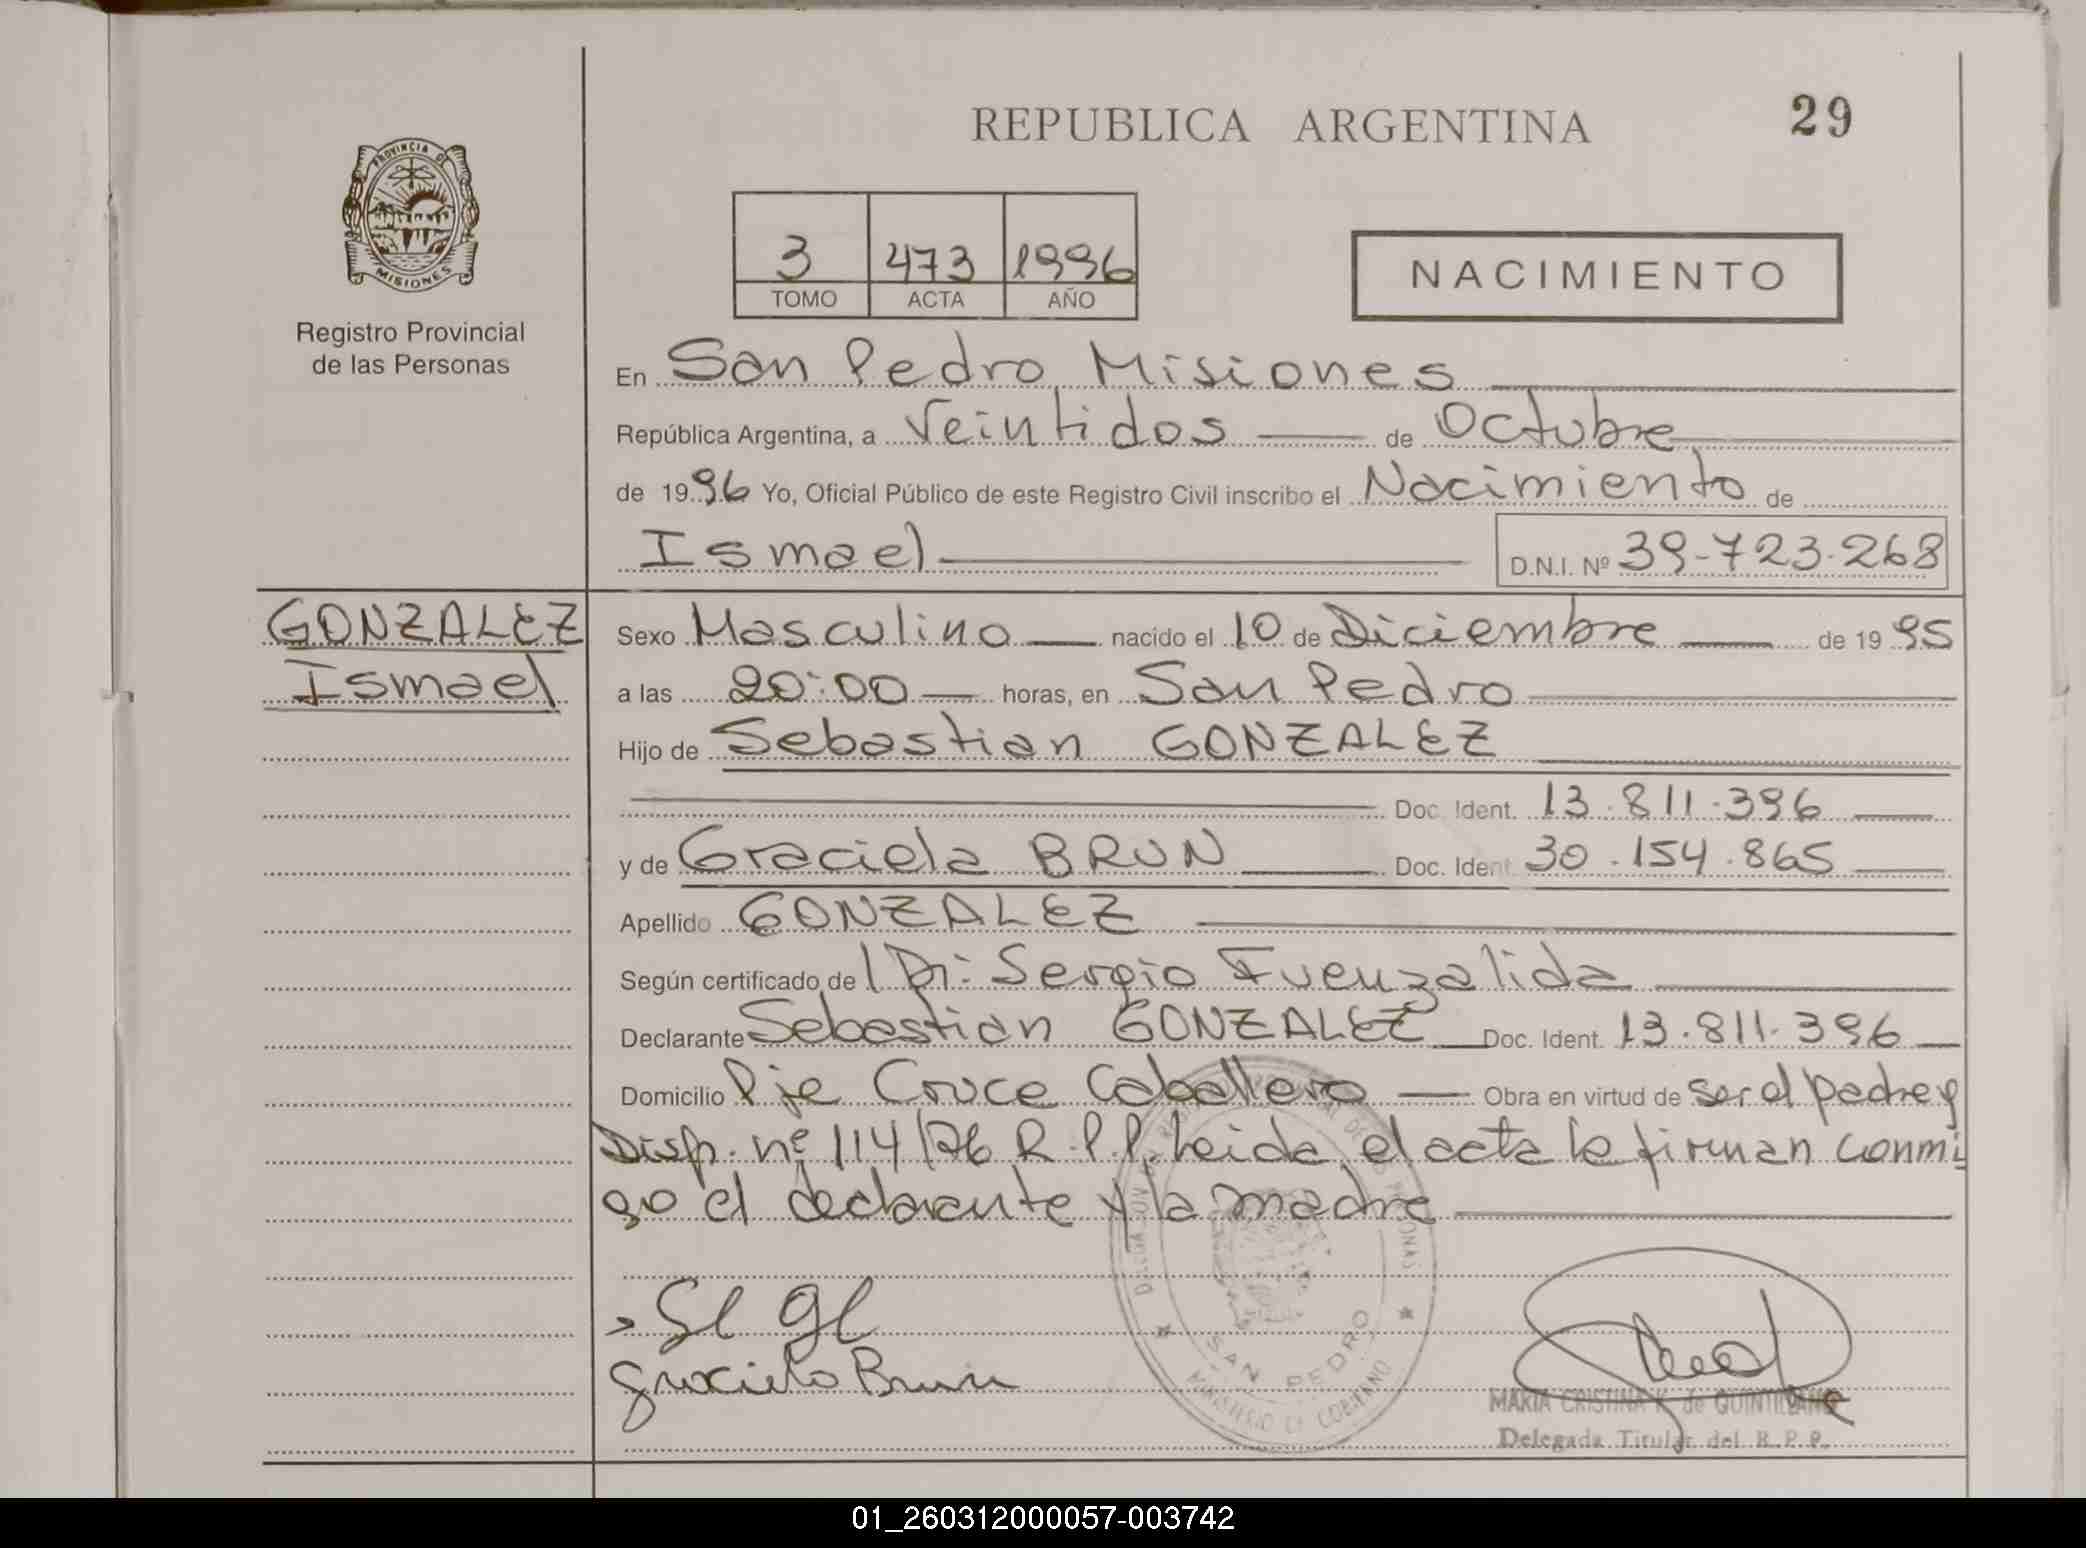 REPUBLICA ARGENTINA
29
PROVINCIA DE
MISIONES
Registro Provincial
de las Personas
3 473 1996
TOMO ACTA AÑO
NACIMIENTO
En San Pedro, Misiones
República Argentina, a Veintidos de Octubre
de 1996 Yo, Oficial Público de este Registro Civil inscribo el Nacimiento de
Ismael D.N.I. Nº 39-723-268
GONZALEZ
Ismael
Sexo Masculino nacido el 10 de Diciembre de 1995
a las 20:00 horas, en San Pedro
Hijo de Sebastian GONZALEZ
Doc. Ident. 13.811.396
y de Graciela BRUN Doc. Ident. 30.154.865
Apellido GONZALEZ
Según certificado de Dr: Sergio Fuenzalida
Declarante Sebastian GONZALEZ Doc. Ident. 13.811.396
Domicilio Pje Cruce Caballero Obra en virtud de ser el padre y
Disp. nº 114/96 R.P.P. Leida el acta la firman conmi
go el declarante y la madre
Graciela Brun
SAN PEDRO
MINISTERIO DE GOBIERNO
MARIA CRISTINA K. de QUINTILLANO
Delegada Titular del R.P.P.
01_260312000057-003742